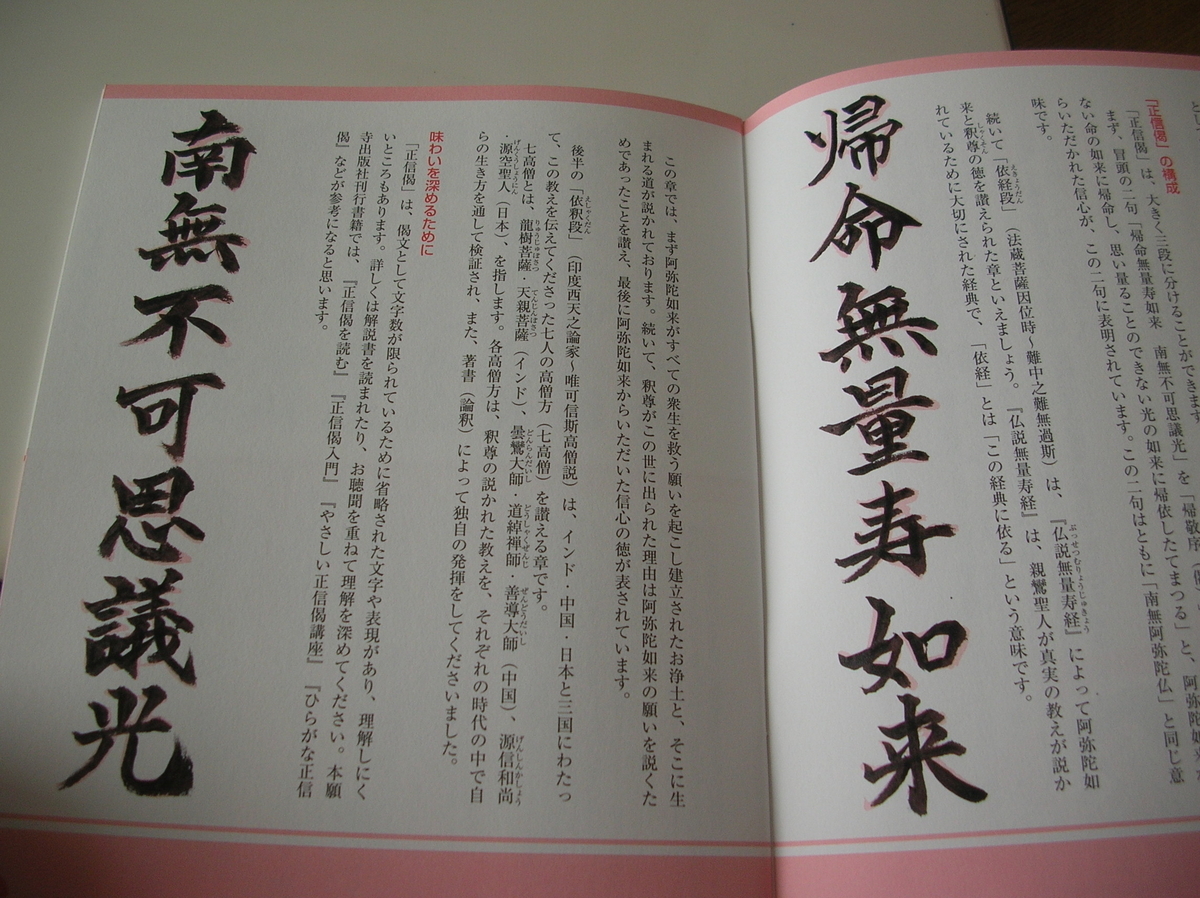 「正信偈」の構成
「正信偈」は、大きく三段に分けることができます
まず、冒頭の二句「帰命無量寿如来　南無不可思議光」を「帰敬序
ない命の如来に帰命し、思い量ることのできない光の如来に帰依したてまつる」と、阿弥陀如
らいただかれた信心が、この二句に表明されています。この二句はともに「南無阿弥陀仏」と同じ意
味です。
続いて「依経段」（法蔵菩薩因位時〜難中之難無過斯）は、『仏説無量寿経』によって阿弥陀如
来と釈尊の徳を讃えられた章といえましょう。『仏説無量寿経』は、親鸞聖人が真実の教えが説か
れているために大切にされた経典で、「依経」とは「この経典に依る」という意味です。
帰命無量寿如来
この章では、まず阿弥陀如来がすべての衆生を救う願いを起こし建立されたお浄土と、そこに生
まれる道が説かれております。続いて、釈尊がこの世に出られた理由は阿弥陀如来の願いを説くた
めであったことを讃え、最後に阿弥陀如来からいただいた信心の徳が表されています。
後半の「依釈段」（印度西天之論家〜唯可信斯高僧説）は、インド・中国・日本と三国にわたっ
て、この教えを伝えてくださった七人の高僧方（七高僧）を讃える章です。
七高僧とは、龍樹菩薩・天親菩薩（インド）、曇鸞大師・道綽禅師・善導大師（中国）、源信和尚
・源空聖人（日本）、を指します。各高僧方は、釈尊の説かれた教えを、それぞれの時代の中で自
らの生き方を通して検証され、また、著書（論釈）によって独自の発揮をしてくださいました。
味わいを深めるために
「正信偈」は、偈文として文字数が限られているために省略された文字や表現があり、理解しにく
いところもあります。詳しくは解説書を読まれたり、お聴聞を重ねて理解を深めてください。本願
寺出版社刊行書籍では、『正信偈を読む』『正信偈入門』『やさしい正信偈講座』『ひらがな正信
偈』などが参考になると思います。
南無不可思議光